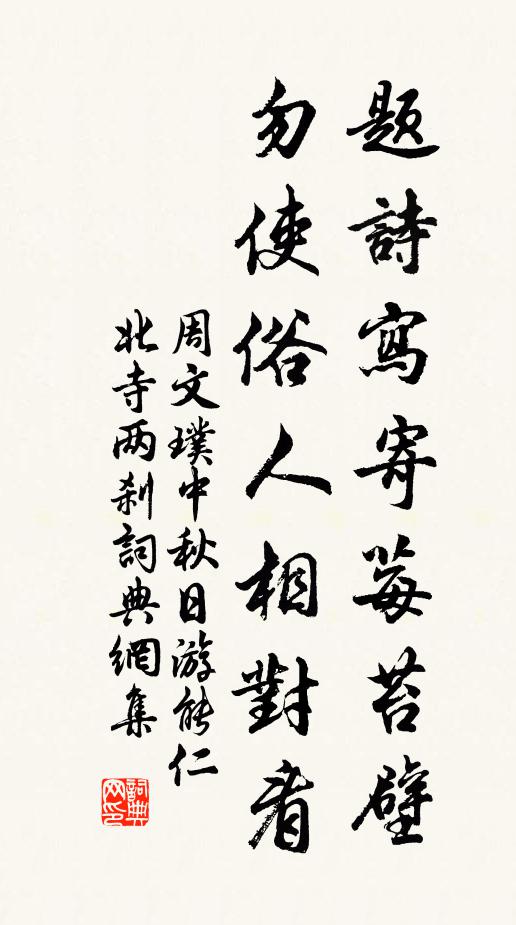 題詩寫寄莓苔壁
勿使俗人相對看
周文璞中秋日游能仁
北寺两刹詞典網集
詞典网印